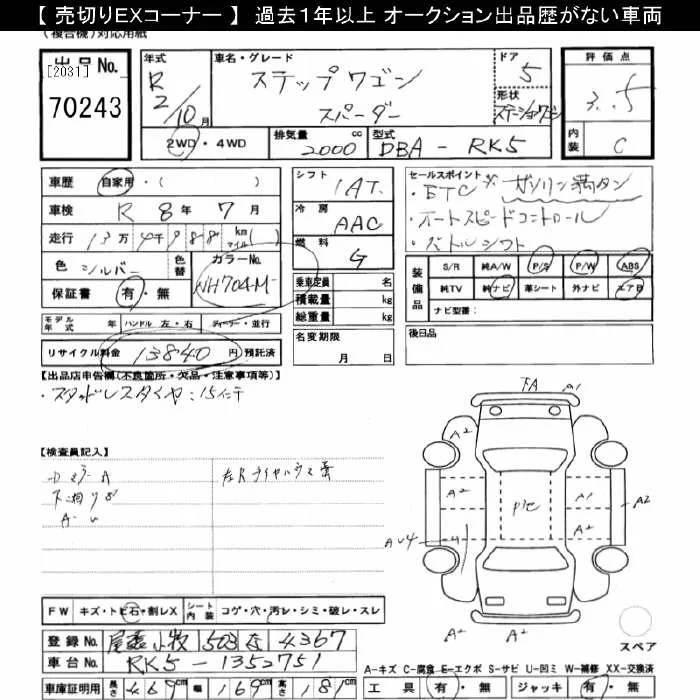 【 売切りEXコーナー 】 過去１年以上 オークション出品歴がない車両
(複合機)対応用紙
出品No.
[2031]
70243
年式
R
2/10月
車名・グレード
ステップワゴン
スパーダー
ドア
5
形状
ステーションワゴン
評価点
3.5
内装
C
2WD・4WD
排気量
2000 cc
型式
DBA - RK5
車歴 自家用・( )
車検 R 8年 7月
走行 13万4千988 km マイル( )
色 シルバー
色替
カラーNo.
NH704M
保証書 有・無
シフト
IAT
冷房
AAC
燃料
G
セールスポイント
・ETC ※ガソリン満タン
・オートスピードコントロール
・パドルシフト
装備品
S/R 純A/W P/S P/W ABS
純TV 純ナビ 革シート 外ナビ エアB
ナビ型番：
乗車定員 名
積載量 kg
総重量 kg
モデル年式 年 ハンドル 左・右 ディーラー・並行
リサイクル料金 13840 円 預託済
名変期限
月 日
後日品
【出品店申告欄(不良箇所・欠品・注意事項等)】
・スタッドレスタイヤ：15インチ
【検査員記入】
FA
A1
A2
A2
A2
A1
A2
P/C
A2
A2
A2
FW キズ・トビ石・割レX
シート内装 コゲ・穴・汚レ・シミ・破レ・スレ
登録No. 尾張小牧 503 4367
車台No. RK5-1352751
車庫証明用 長さ 469cm 幅 169cm 高さ 181cm
スペア
A-キズ C-腐食 E-エクボ S-サビ U-凹ミ W-補修 XX-交換済
工具 有・無 ジャッキ 有・無